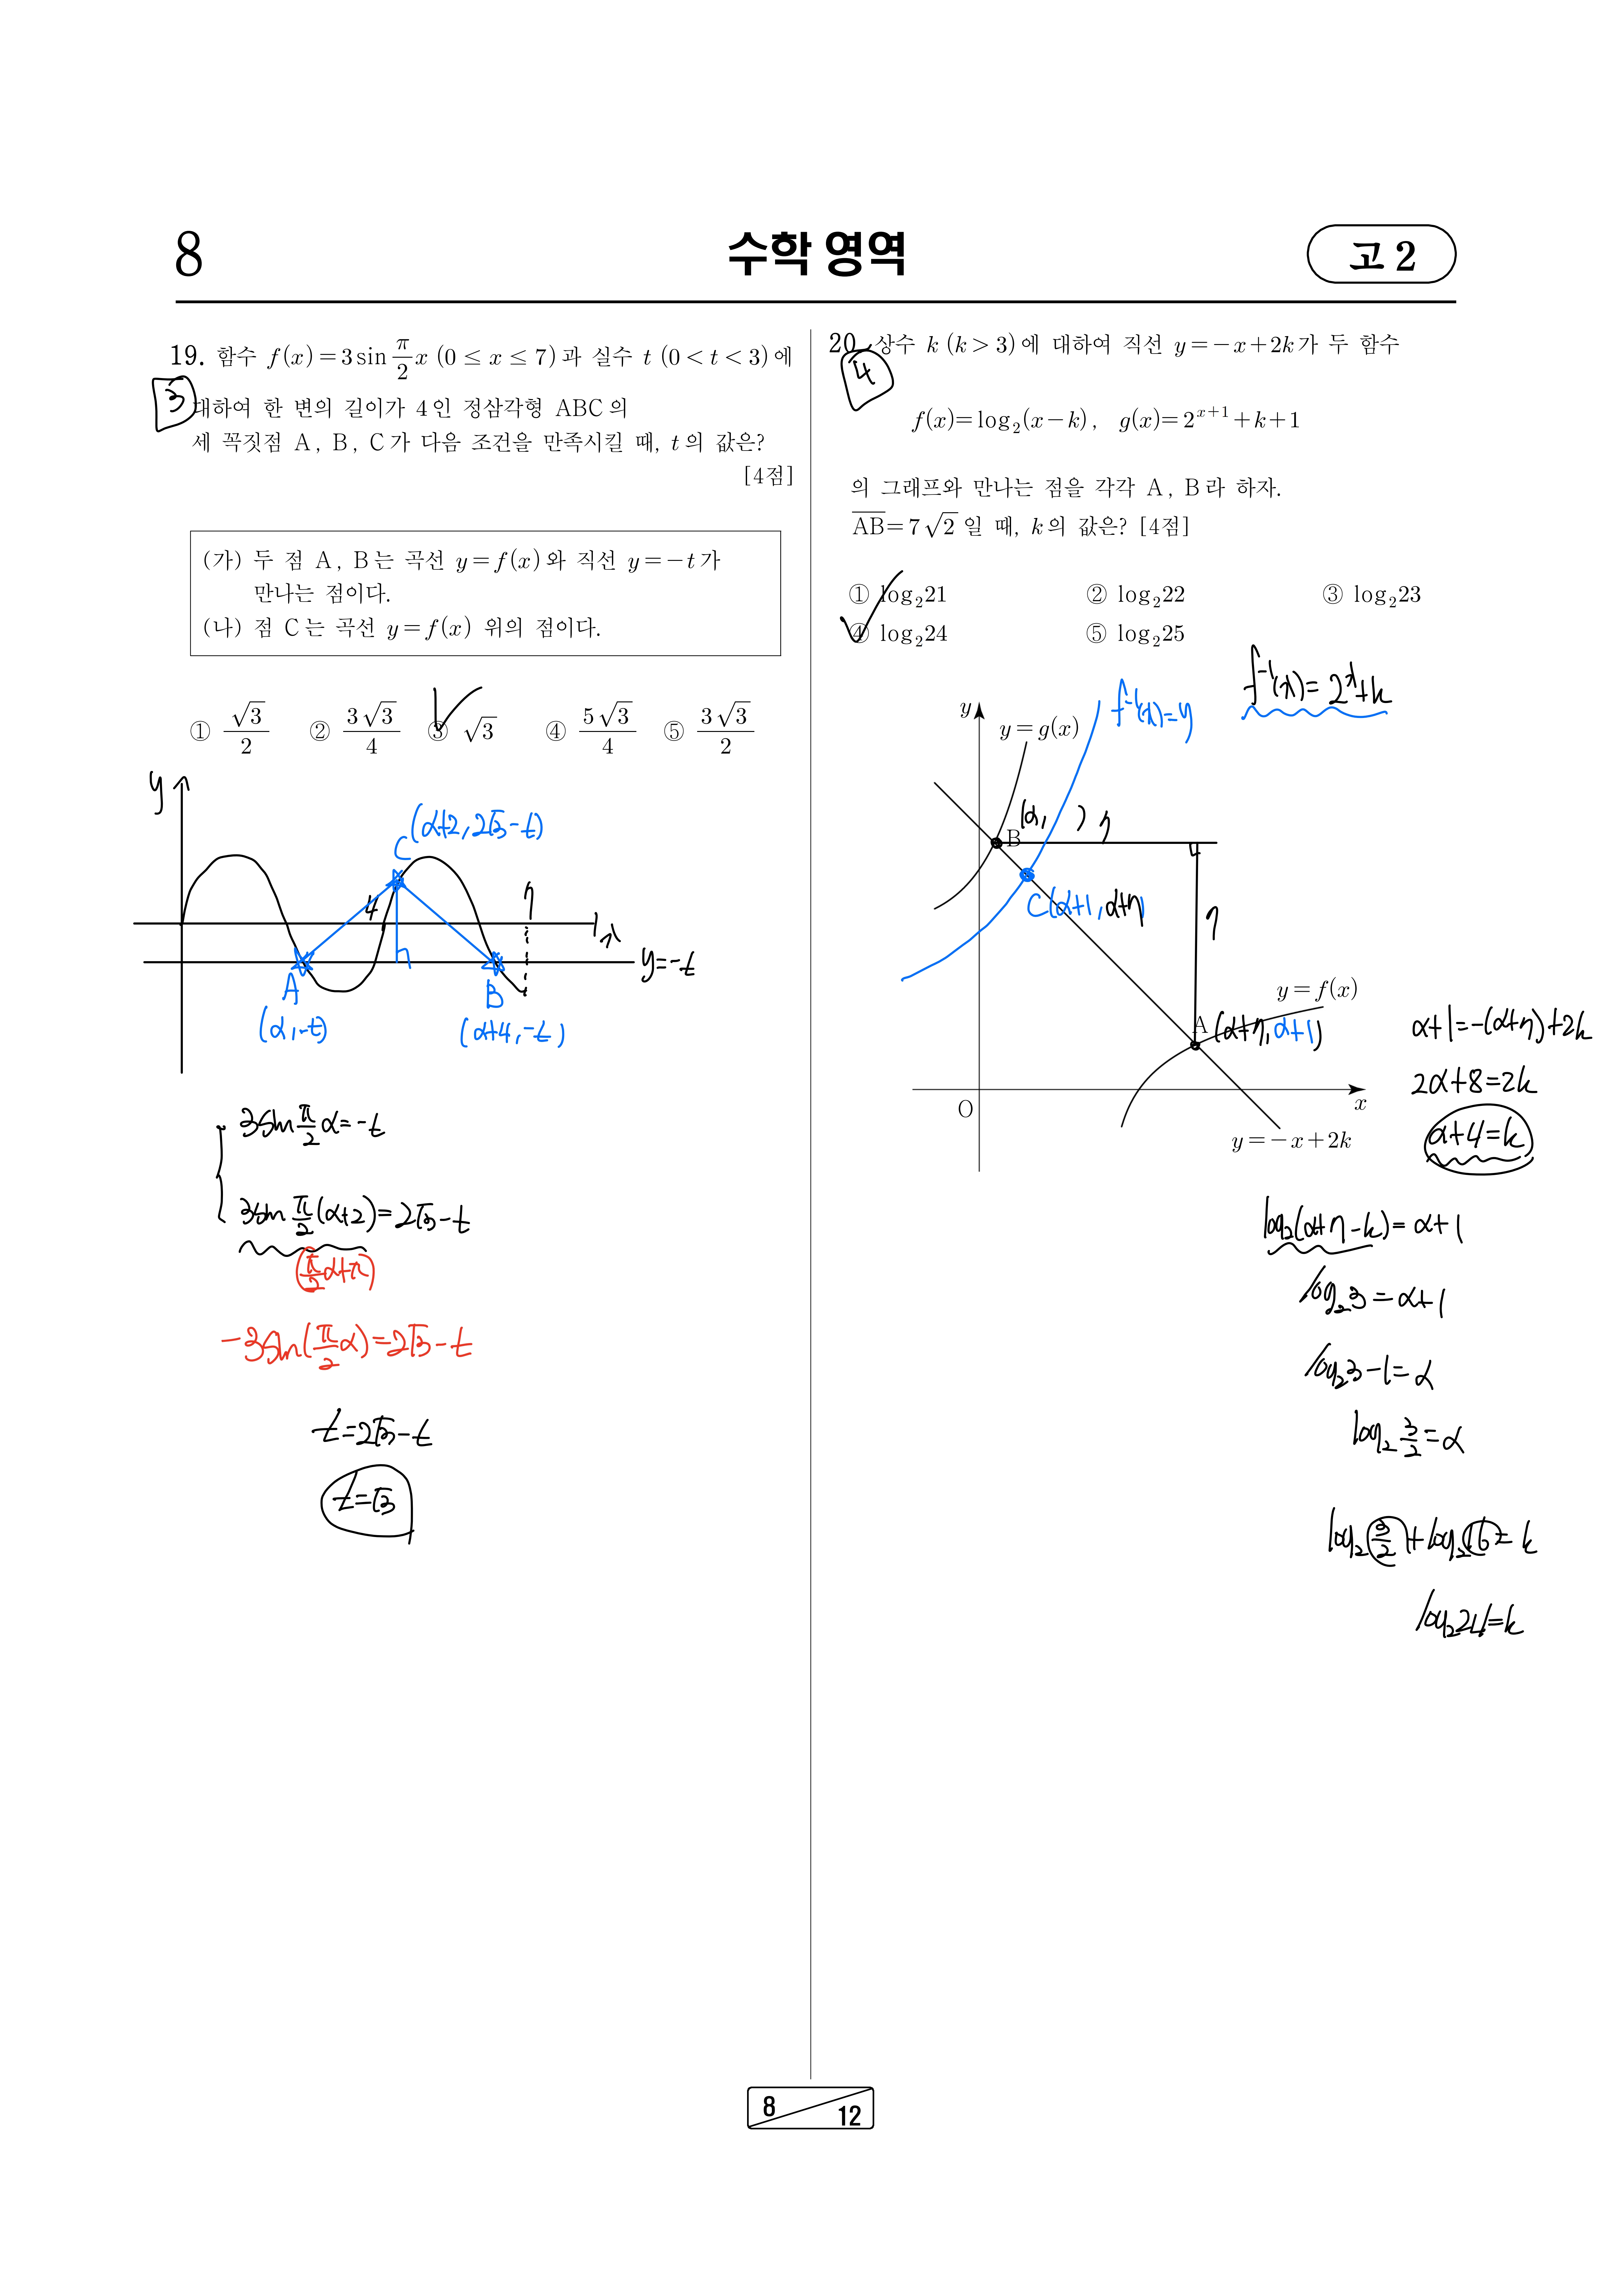 8
수학 영역
고 2
19. 함수 f(x)=3sin π/2 x (0≤x≤7)과 실수 t (0<t<3)에
3
대하여 한 변의 길이가 4인 정삼각형 ABC의
세 꼭짓점 A, B, C가 다음 조건을 만족시킬 때, t의 값은?
[4점]
(가) 두 점 A, B는 곡선 y=f(x)와 직선 y=-t가
만나는 점이다.
(나) 점 C는 곡선 y=f(x) 위의 점이다.
① √3/2 ② 3√3/4 ③ √3 ④ 5√3/4 ⑤ 3√3/2
y
C(α+2, 2√3-t)
4
7
x
h
y=-t
A
B
(α, -t)
(α+4, -t)
3sin π/2 α=-t
3sin π/2 (α+2)=2√3-t
(π/2 α+π)
-3sin(π/2 α)=2√3-t
t=2√3-t
t=√3
20. 상수 k (k>3)에 대하여 직선 y=-x+2k가 두 함수
4
f(x)=log₂(x-k), g(x)=2^(x+1)+k+1
의 그래프와 만나는 점을 각각 A, B라 하자.
AB=7√2 일 때, k의 값은? [4점]
① log₂21 ② log₂22 ③ log₂23
④ log₂24 ⑤ log₂25
f⁻¹(x)=2^x+k
f⁻¹(x)=y
y
y=g(x)
(α, )
7
B
C(α+1, α+7)
7
y=f(x)
A
(α+7, α+1)
O
x
y=-x+2k
α+1=-(α+7)+2k
2α+8=2k
α+4=k
log₂(α+7-k)=α+1
log₂3=α+1
log₂3-1=α
log₂ 3/2=α
log₂ 3/2+log₂16=k
log₂24=k
8
12